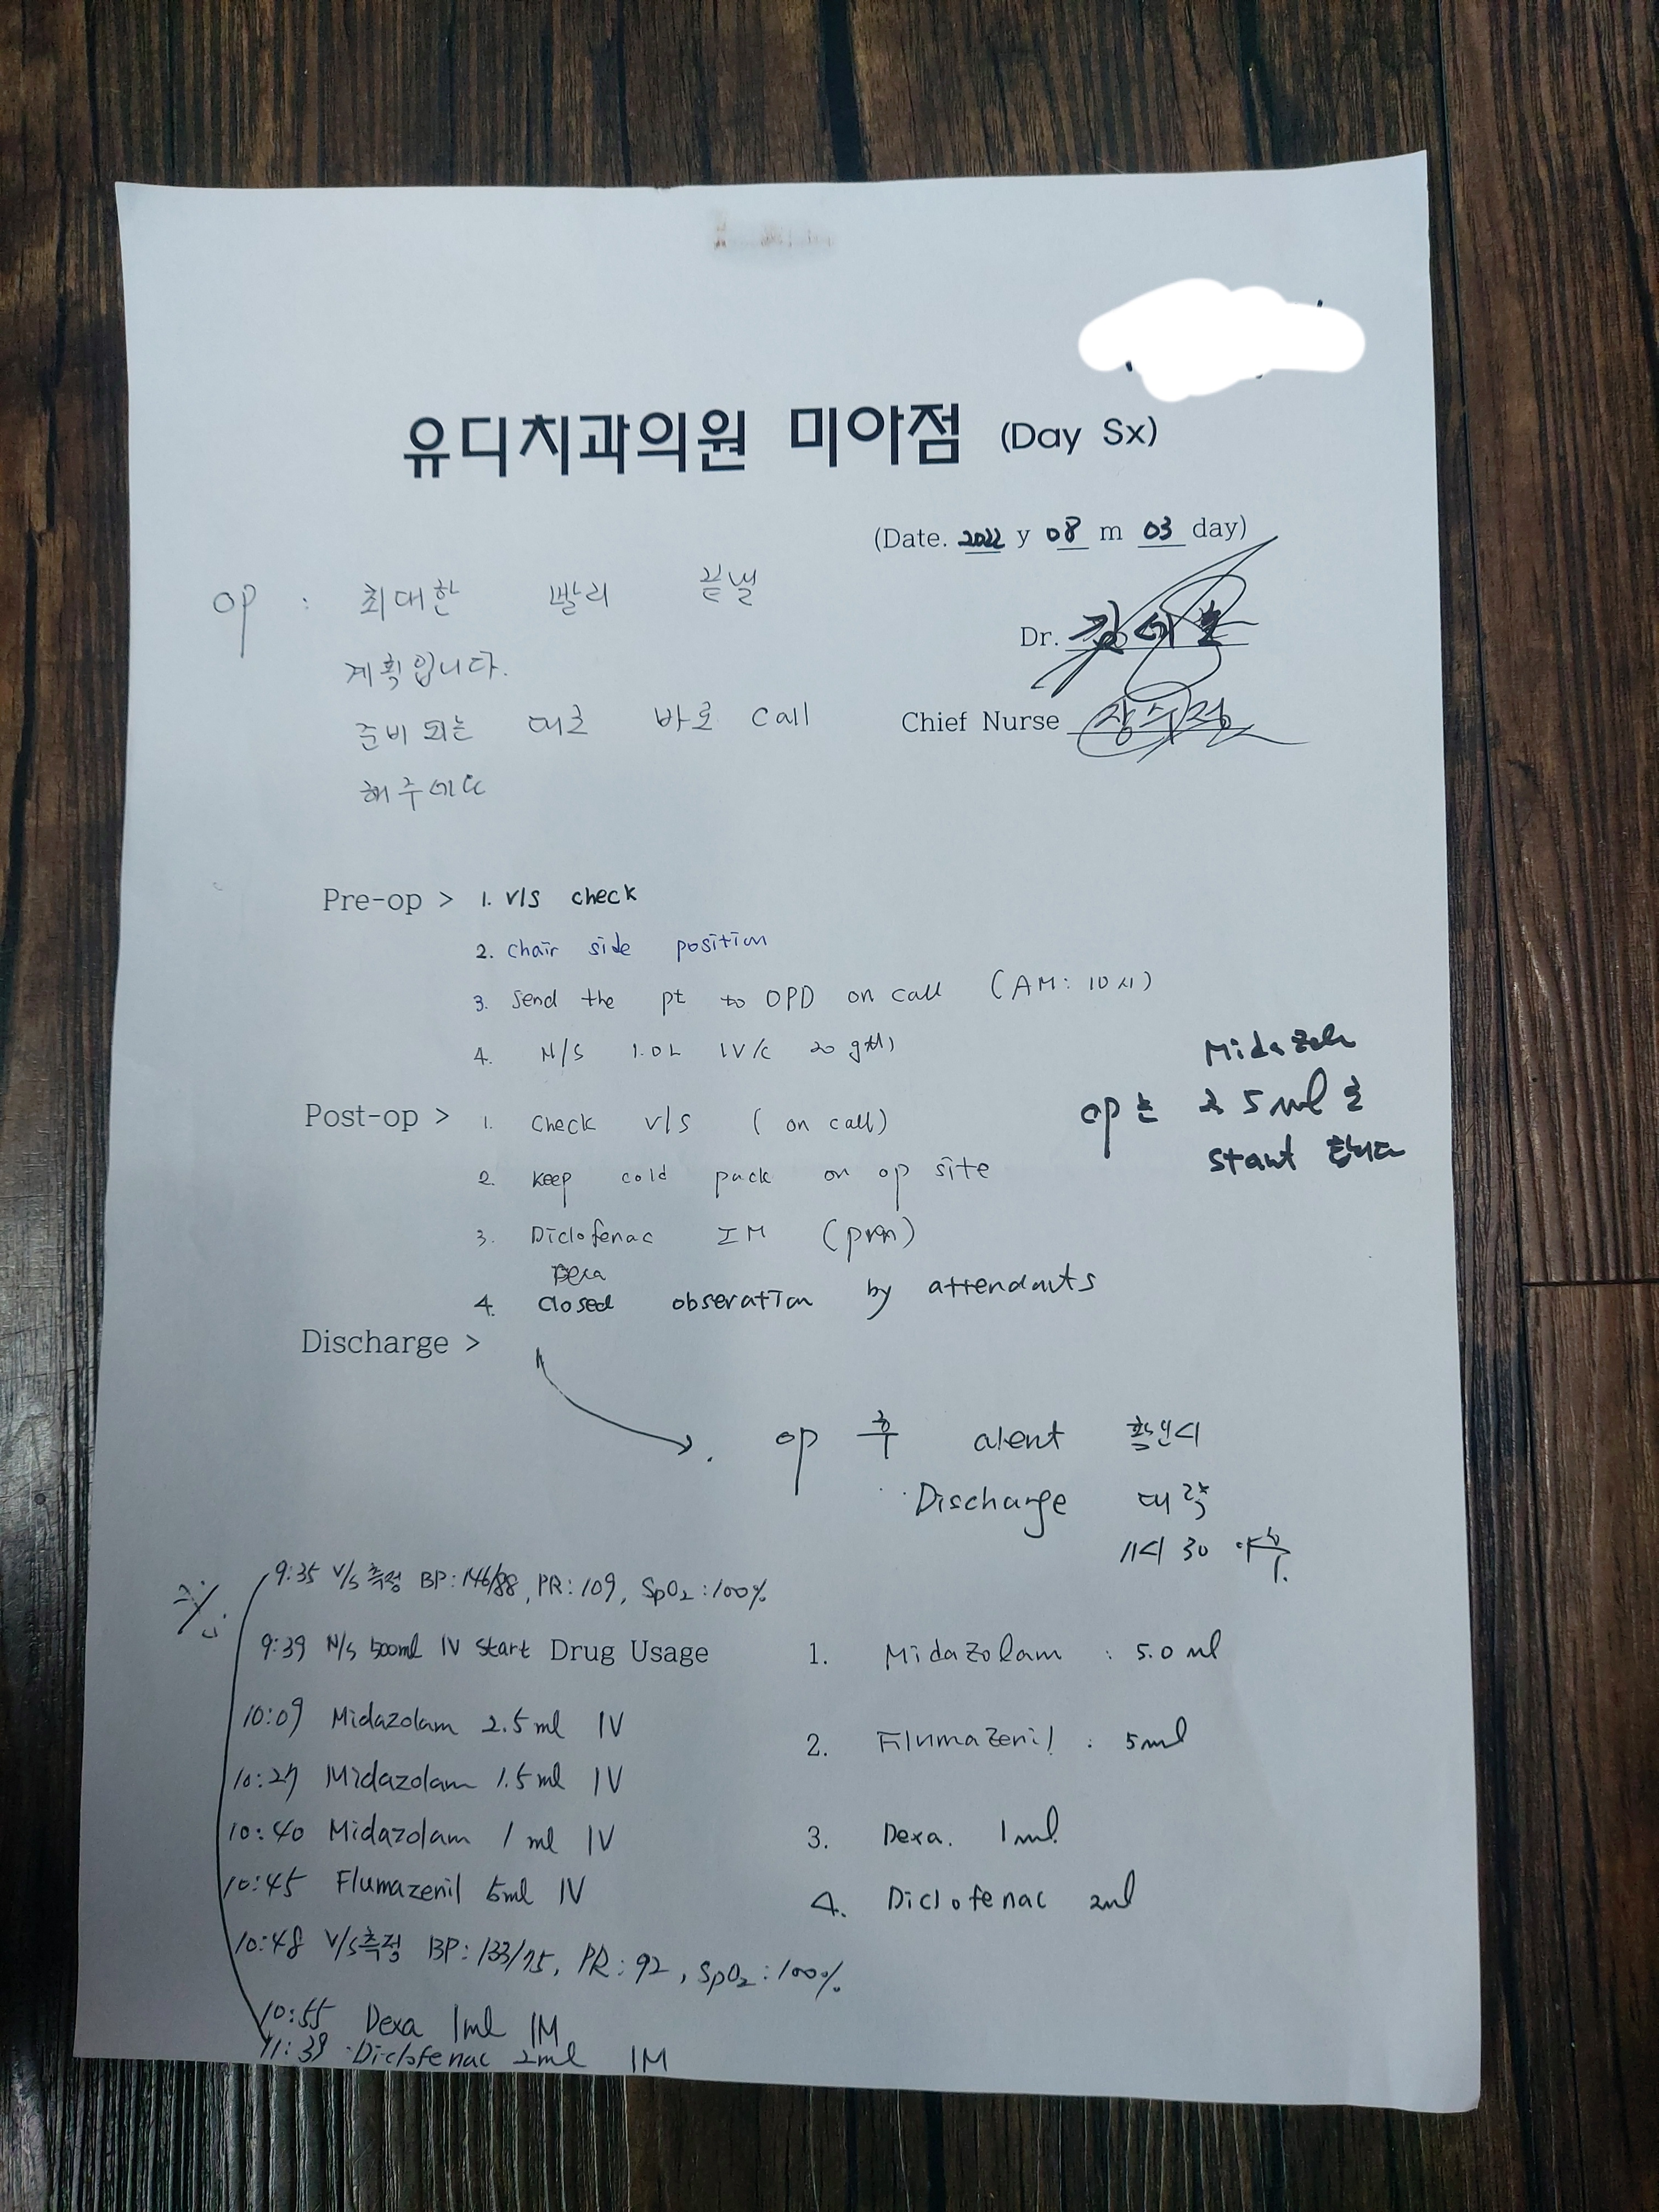 유디치과의원 미아점 (Day Sx)
(Date. 2022 y 08 m 03 day)
op : 최대한 빨리 끝낼
계획입니다.
준비 되는 대로 바로 call
해주세요
Dr.
Chief Nurse
Pre-op > 1. V/S check
2. chair side position
3. send the pt to OPD on call (AM: 10시)
4. N/S 1.0L IV/c 20 gtt)
Post-op > 1. check V/S (on call)
2. keep cold pack on op site
3. Diclofenac IM (prn)
Dexa
4. closed obseration by attendants
op는 2.5ml로
start 합니다
Discharge >
op 후 alert 확인시
Discharge 대략
11시 30 이후
9:35 V/S 측정 BP: 146/88, PR: 109, SpO2: 100%
9:39 N/S 500ml IV start
10:09 Midazolam 2.5ml IV
10:27 Midazolam 1.5ml IV
10:40 Midazolam 1ml IV
10:45 Flumazenil 5ml IV
10:48 V/S측정 BP: 133/75, PR: 92, SpO2: 100%
10:55 Dexa 1ml IM
11:39 Diclofenac 2ml IM
Drug Usage 1. Midazolam : 5.0 ml
2. Flumazenil : 5ml
3. Dexa. 1ml.
4. Diclofenac 2ml